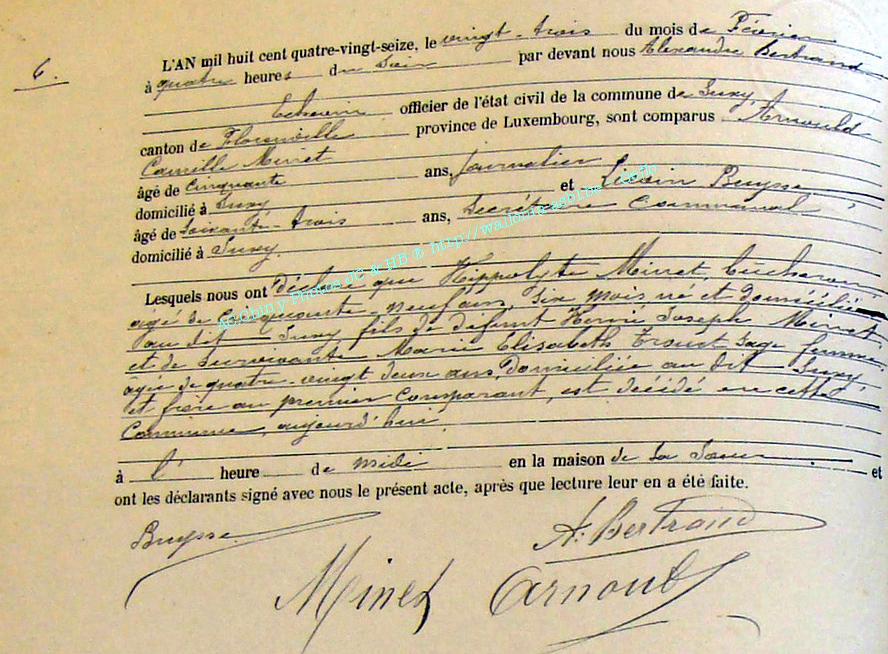 6.
L'AN mil huit cent quatre-vingt-seize, le vingt-trois du mois de Février
à quatre heures du Soir par devant nous Alexandre Bertrand
Echevin officier de l'état civil de la commune de Suxy,
canton de Florenville province de Luxembourg, sont comparus Arnould
Camille Minet
âgé de Cinquante ans, journalier
domicilié à Suxy et Buysse
âgé de Soixante-trois ans, Secrétaire Communal,
domicilié à Suxy.
Lesquels nous ont déclaré que Hippolyte Minet, bûcheron,
âgé de Cinquante-neuf ans, six mois né et domicilié
au dit Suxy fils de défunt Henri Joseph Minet,
et de survivante Marie Elisabeth sage femme,
âgée de quatre-vingt deux ans, domiciliée au dit Suxy,
et frère au premier Comparant, est décédé en cette
Commune, aujourd'hui,
à l' heure de midi en la maison de sa Sœur et
ont les déclarants signé avec nous le présent acte, après que lecture leur en a été faite.
Buysse A. Bertrand
Minet Arnould